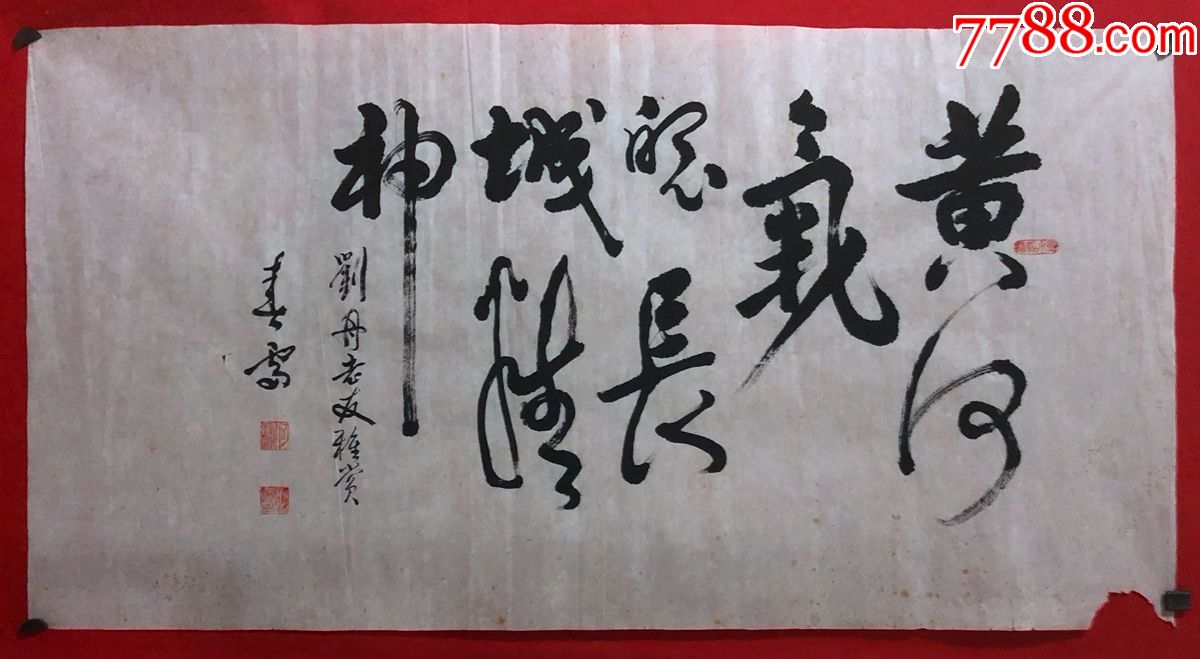 7788.com
黄河
氣
魄長
城精
神
劉丹老友雅賞
春